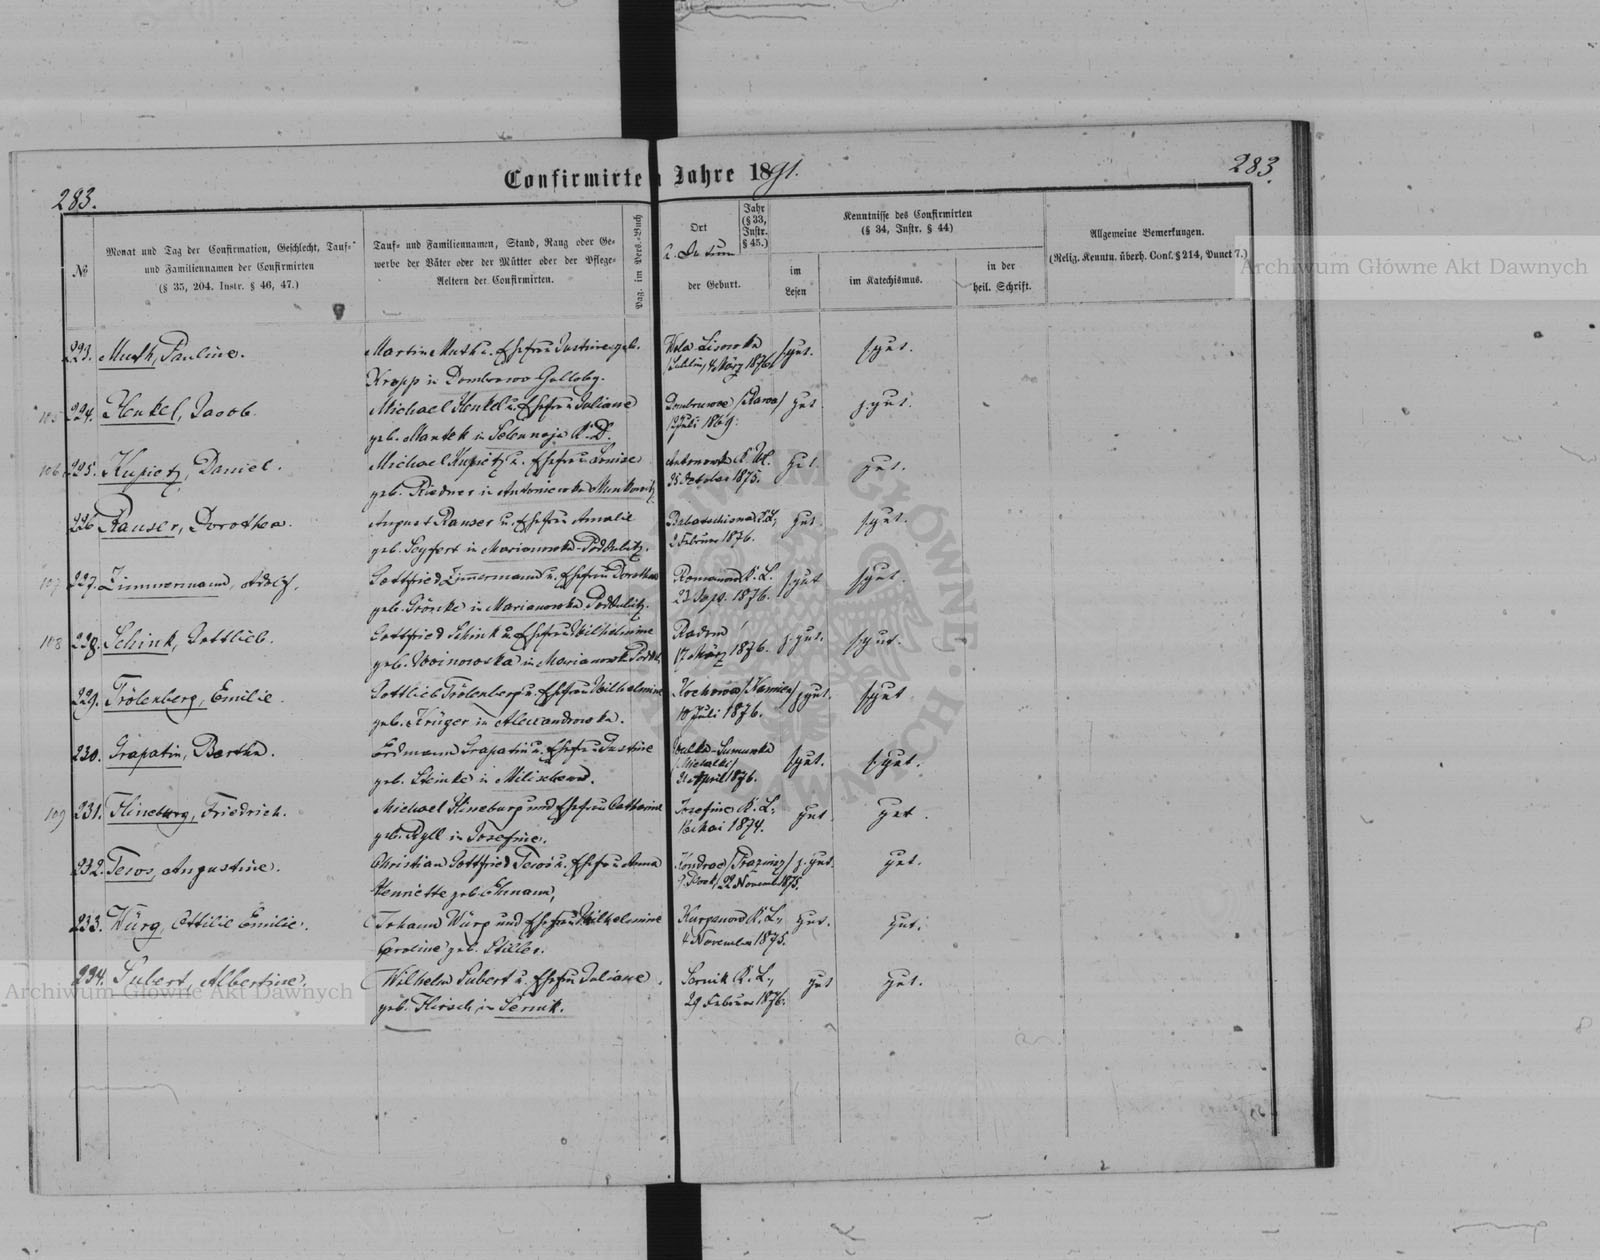 283.
Confirmirte n Jahre 1891.
283.
№
Monat und Tag der Confirmation, Geschlecht, Tauf-
und Familiennamen der Confirmirten
(§ 35, 204. Instr. § 46, 47.)
Tauf- und Familiennamen, Stand, Rang oder Ge-
werbe der Väter oder der Mütter oder der Pflege-
Aeltern der Confirmirten.
Pag. im Pers.-Buch
Ort
u. Datum
der Geburt.
Jahr
(§ 33,
Instr.
§ 45.)
Kenntnisse des Confirmirten
(§ 34, Instr. § 44)
im
Lesen
im Katechismus.
in der
heil. Schrift.
Allgemeine Bemerkungen.
(Relig. Kenntn. überh. Conf. § 214, Punct 7.)
Archiwum Główne Akt Dawnych
223. Muth, Pauline.
Martin Muth u. Ehefrau Justine geb.
Kropp in Dombrowo
März 1876
s. gut.
s. gut.
105 224. Henkel, Jacob.
Michael Henkel u. Ehefrau Juliane
geb. Mantek in
Juli 1869.
gut
z. gut.
106 225. Kupietz, Daniel.
Michael Kupietz u. Ehefrau Louise
geb. in Antoniowka
October 1875.
gut
gut.
226 Rauser, Dorothea.
August Rauser u. Ehefrau Amalie
geb. Seyfert in Marianowka-
2 Februar 1876.
gut
s. gut.
107 227. Zimmermann, Adolf.
Gottfried Zimmermann u. Ehefrau Dorothea
geb. in Marianowka
Romanow K. L.
23 Sep. 1876.
s. gut
s. gut.
108 228. Schink, Gottlieb.
Gottfried Schink u. Ehefrau Wilhelmine
geb. Woinowska in Marianowka
Radom
17 März 1876.
z. gut.
s. gut.
229. Trölenberg, Emilie.
Gottlieb Trölenberg u. Ehefrau Wilhelmine
geb. Krüger in Alexandrowka.
10 Juli 1876.
z. gut.
s. gut
230. Grapatin, Bertha.
Erdmann Grapatin u. Ehefrau Justine
geb. Steinke in
April 1876.
s. gut.
s. gut.
109 231. Flineburg, Friedrich.
Michael Flineburg und Ehefrau Catharine
geb. Ryll in Josefine.
Josefine K. L.
Mai 1874.
gut
gut.
232. Tews, Augustine.
Christian Gottfried Tews u. Ehefrau Anna
Henriette geb. Ehmann,
22 November 1875.
z. gut.
gut.
233. Würg, Ottilie Emilie.
Johann Würg und Ehefrau Wilhelmine
Caroline geb. Stiller.
Kurganow K. L.,
4 November 1875.
gut.
gut.
234. Subert, Albertine.
Wilhelm Subert u. Ehefrau Juliane
geb. Hirsch in Sernik.
Sernik K. L.,
29 Februar 1876.
gut
gut.
Archiwum Główne Akt Dawnych